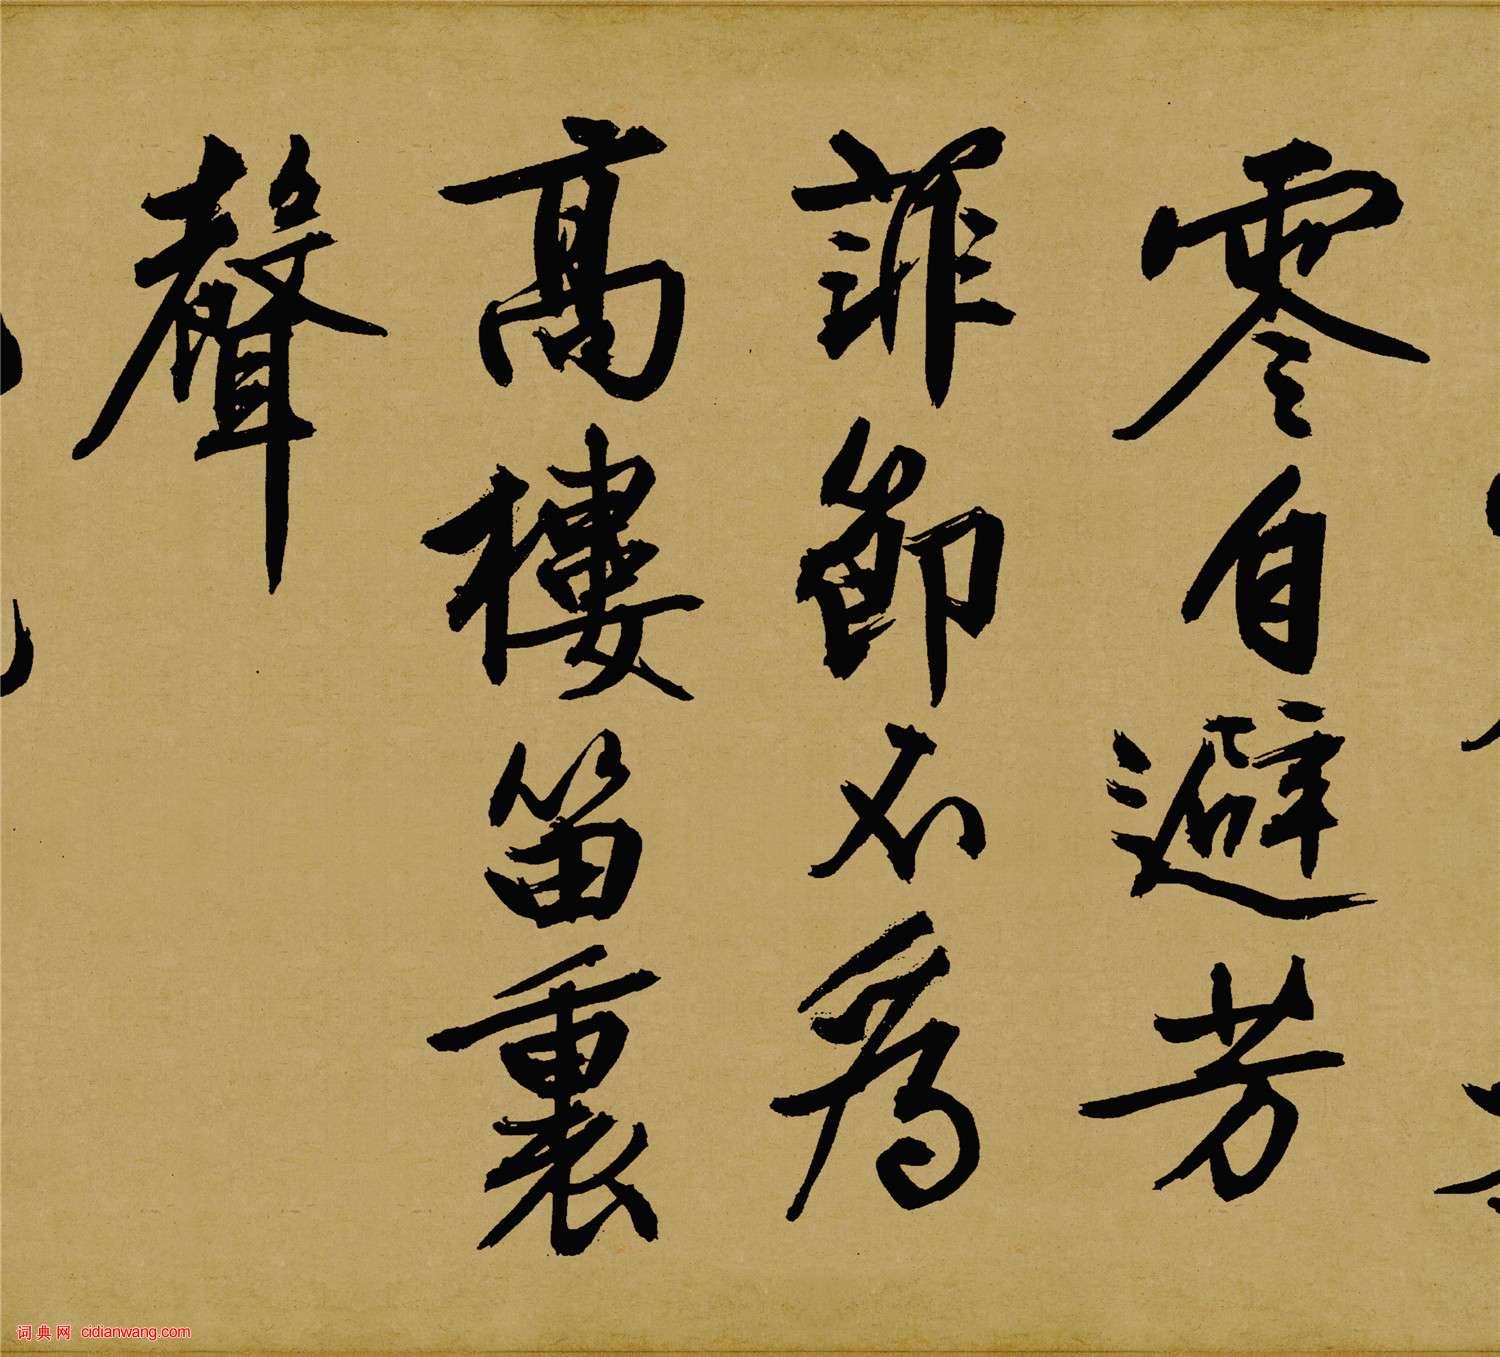 零自避芳
菲節不為
高樓笛裏
聲
词典网 cidianwang.com